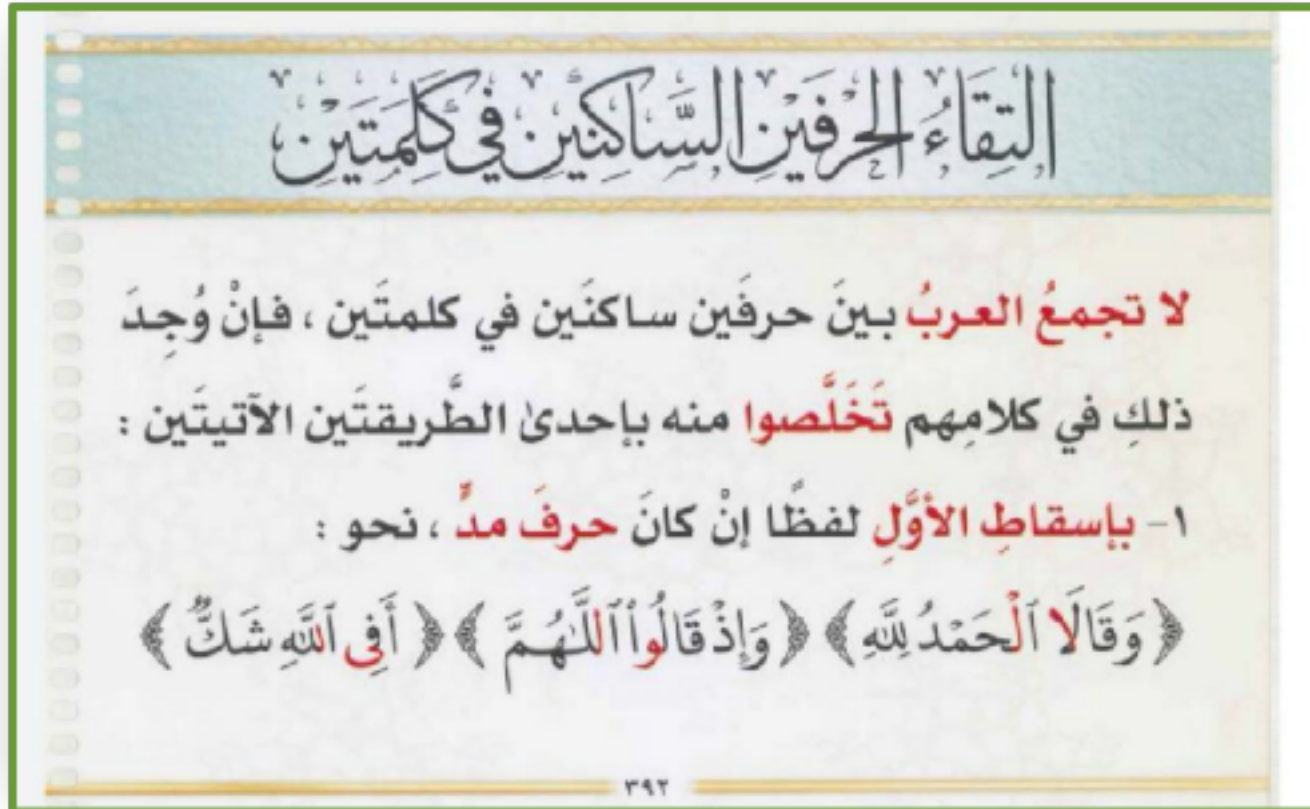 التِقَاءُ الحَرْفَيْنِ السَّاكِنَيْنِ فِي كَلِمَتَيْنِ
لا تجمعُ العربُ بينَ حرفَين ساكنَين في كلمتَين ، فإنْ وُجِدَ
ذلكِ في كلامِهم تَخَلَّصوا منه بإحدىٰ الطَّريقتَين الآتيتَين :
١- بإسقاطِ الأوَّلِ لفظًا إنْ كانَ حرفَ مدٍّ ، نحو :
﴿ وَقَالَا ٱلْحَمْدُ لِلَّهِ ﴾ ﴿ وَإِذْ قَالُوا۟ ٱللَّهُمَّ ﴾ ﴿ أَفِى ٱللَّهِ شَكٌّ ﴾
٣٩٢